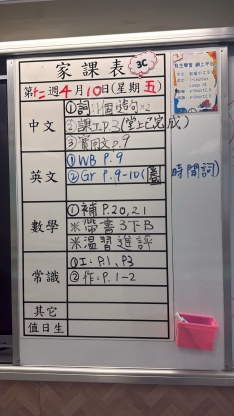 家課表 3C
第12週4月10日(星期五)
中文
①詞11個,造句×2
②課工p.3(堂上已完成)
③實用文p.9
英文
①WB P.9
②Gr P.9-10(圈時間詞)
數學
①補P.20,21
米帶書3下B
米溫習進評
常識
①工:P.1,P3
②作:P.1-2
其它
值日生